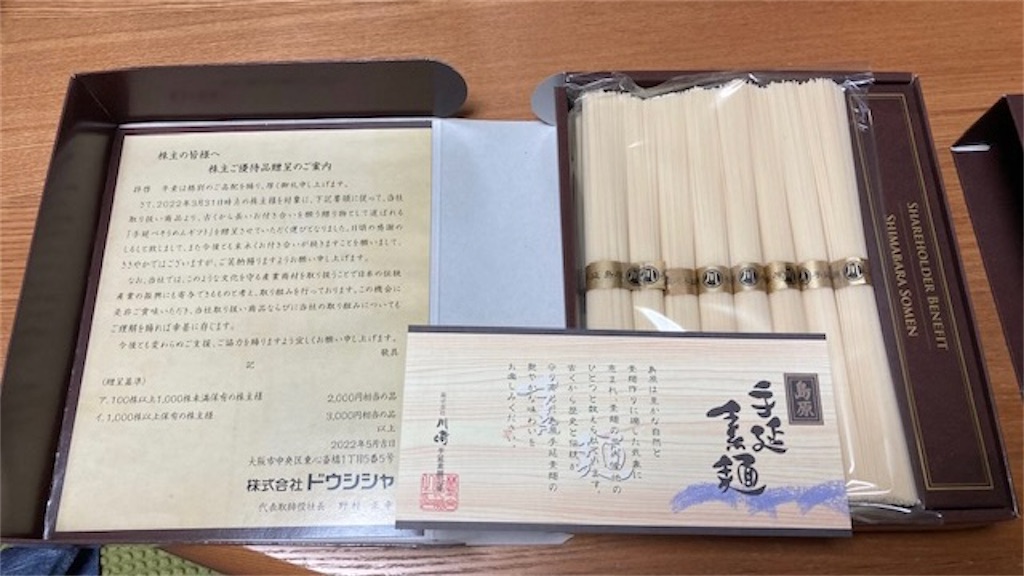 株主の皆様へ
株主ご優待品贈呈のご案内
拝啓 平素は格別のご高配を賜り、厚く御礼申し上げます。
さて、2022年3月31日時点の株主様を対象に、下記要領に従って、当社
取り扱い商品より、古くから長いお付き合いを願う贈り物として選ばれる
「手延べそうめんギフト」を贈呈させていただく運びとなりました。日頃の感謝の
しるしと致しまして、また今後とも末永くお付き合いが続きますことを願いまして、
ささやかではございますが、ご笑納賜りますようお願い申し上げます。
なお、当社では、このような文化を守る産業商材を取り扱うことで日本の伝統
産業の振興にも寄与できるものと考え、取り組みを行っております。この機会に
是非ご賞味いただき、当社取り扱い商品ならびに当社の取り組みについても
ご理解を賜れば幸甚に存じます。
今後とも変わらぬご支援、ご協力を賜りますよう宜しくお願い申し上げます。
敬具
記
(贈呈基準)
ア.100株以上1,000株未満保有の株主様 2,000円相当の品
イ.1,000株以上保有の株主様 3,000円相当の品
以上
2022年5月吉日
大阪市中央区東心斎橋1丁目5番5号
株式会社ドウシシャ
代表取締役社長 野村 正幸
SHAREHOLDER BENEFIT
SHIMABARA SOMEN
島原
手延
素麺
島原は豊かな自然と
素麺作りに適した気象に
恵まれ、素麺の
ひとつと数えられ
古くから歴史と伝統が
手延素麺の
艶やかな味わいを
お楽しみください。
株式会社 川崎